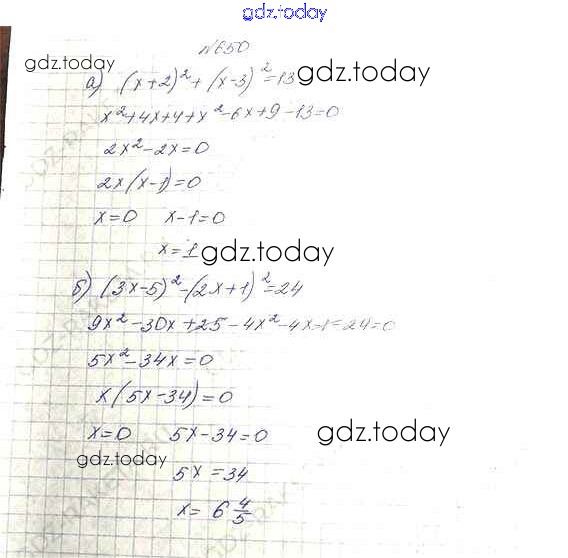 gdz.today
№650
gdz.today
а) (x+2)²+(x-3)²=13 gdz.today
x²+4x+4+x²-6x+9-13=0
2x²-2x=0
2x(x-1)=0
x=0 x-1=0
x=1 gdz.today
б) (3x-5)²-(2x+1)²=24
9x²-30x+25-4x²-4x-1-24=0
5x²-34x=0
x(5x-34)=0
x=0 5x-34=0 gdz.today
gdz.today
5x=34
x= 6 4/5